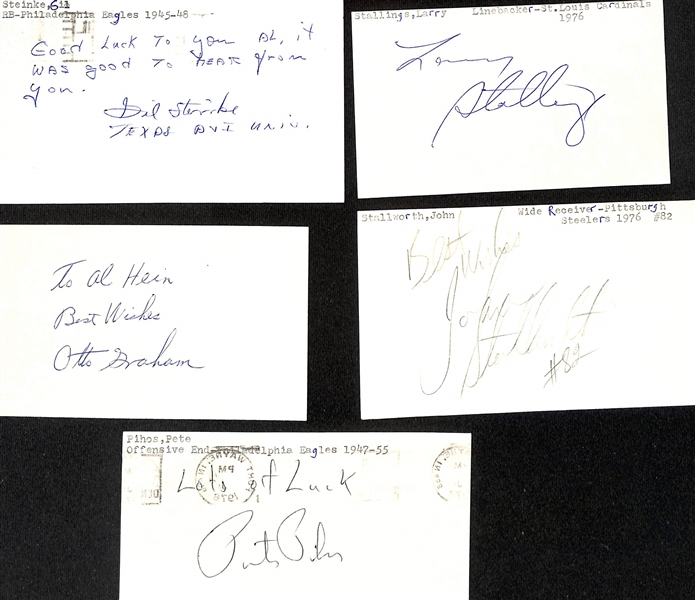 Steinke,Gil
RB-Philadelphia Eagles 1945-48
Good Luck To you AL, it
was good to hear from
you.
Gil Steinke
Texas A+I Univ.
Stallings,Larry Linebacker-St.Louis Cardinals
1976
Larry
Stallings
To Al Hein
Best Wishes
Otto Graham
Stallworth,John Wide Receiver-Pittsburgh
Steelers 1976 #82
Best
Wishes
John
Stallworth
#82
Pihos,Pete
Offensive End-Philadelphia Eagles 1947-55
Lots of Luck
Pete Pihos
FORT WAYNE, IN
PM
1976